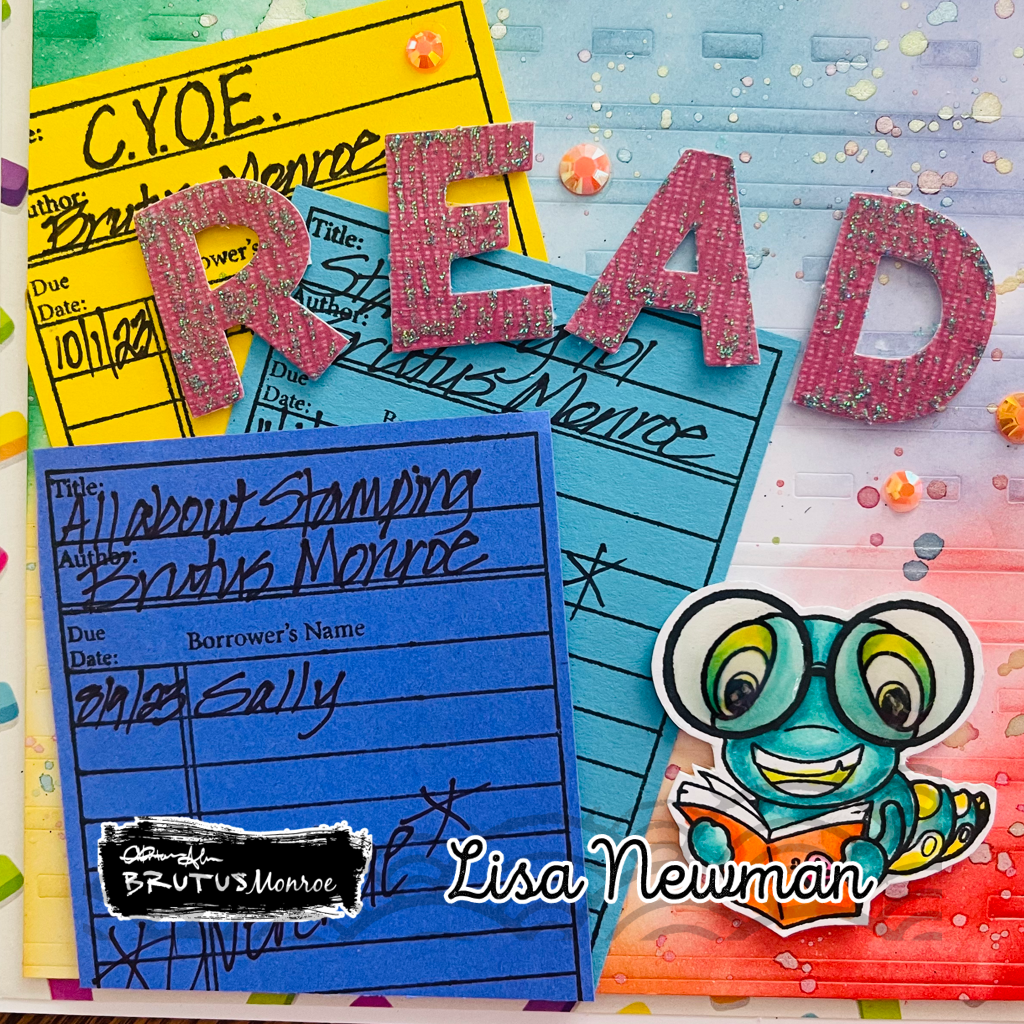 C.Y.O.E.
Author:
Brutus Monroe
Due
Date:
10/1/23
READ
Title:
Author:
Brutus Monroe
Due
Date:
Title:
All about Stamping
Author:
Brutus Monroe
Due
Date:
Borrower's Name
8/9/23 Sally
BRUTUS Monroe
Lisa Newman